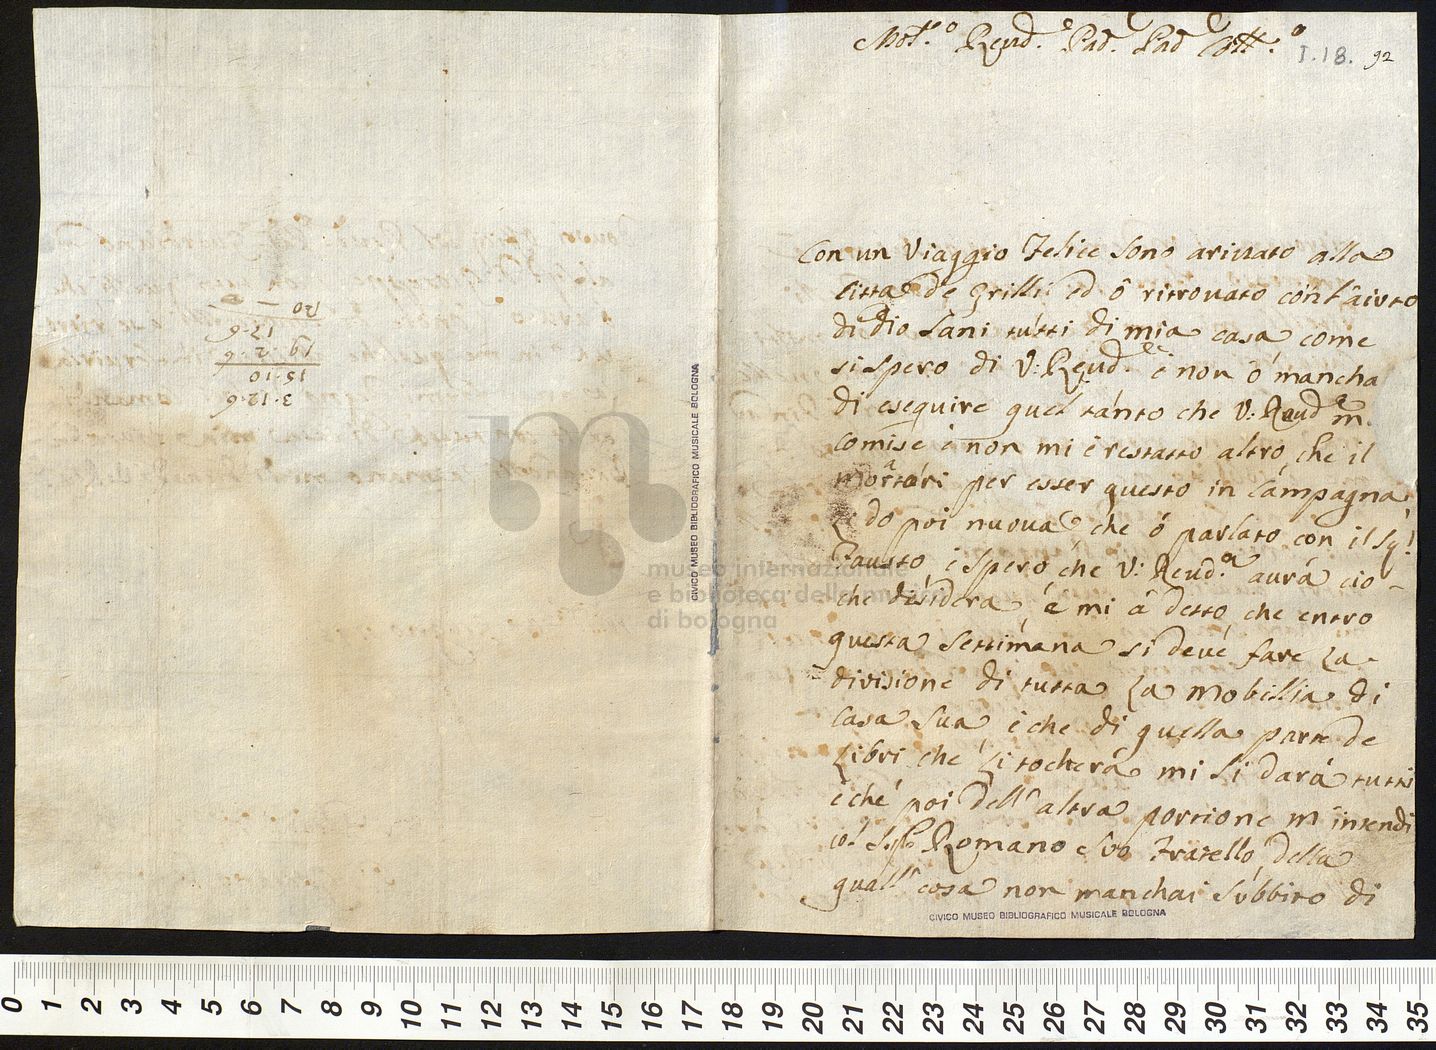 Mol.º Reud.e Pad. Pad
I.18. 92
Con un Viaggio Felice sono arivato alla
Citta de Grilli ed ô ritrovato con l'aiuto
di dio Sani tutti di mia casa come
si spero di V: Reud.e e non ó mancha
di eseguire quel tánto che V: Reud.a m.
comise e non mi é restatto altro che il
mortari per esser questo in Cámpagna
Li do poi nuova che ó parlato con il Sig!
Fausto e Spero che V: Reud.a aurá cio
che désidera, é mi á detto che entro
questa Settimána si deve fare La
divisione di tutta La Mobillia di
Casa Sua e che di quella parte de
Libri che Li tocherá mi Li dará tutti
é ché poi dell' altra portione m'intendi
Romano Suo Fratello della
quall' cosa non manchai Sùbbito di
20
17.6
19.2.6
15.10
3.12.6
CIVICO MUSEO BIBLIOGRAFICO MUSICALE BOLOGNA
CIVICO MUSEO BIBLIOGRAFICO MUSICALE BOLOGNA
m
museo internazionale
e biblioteca della musica
di bologna
0 1 2 3 4 5 6 7 8 9 10 11 12 13 14 15 16 17 18 19 20 21 22 23 24 25 26 27 28 29 30 31 32 33 34 35